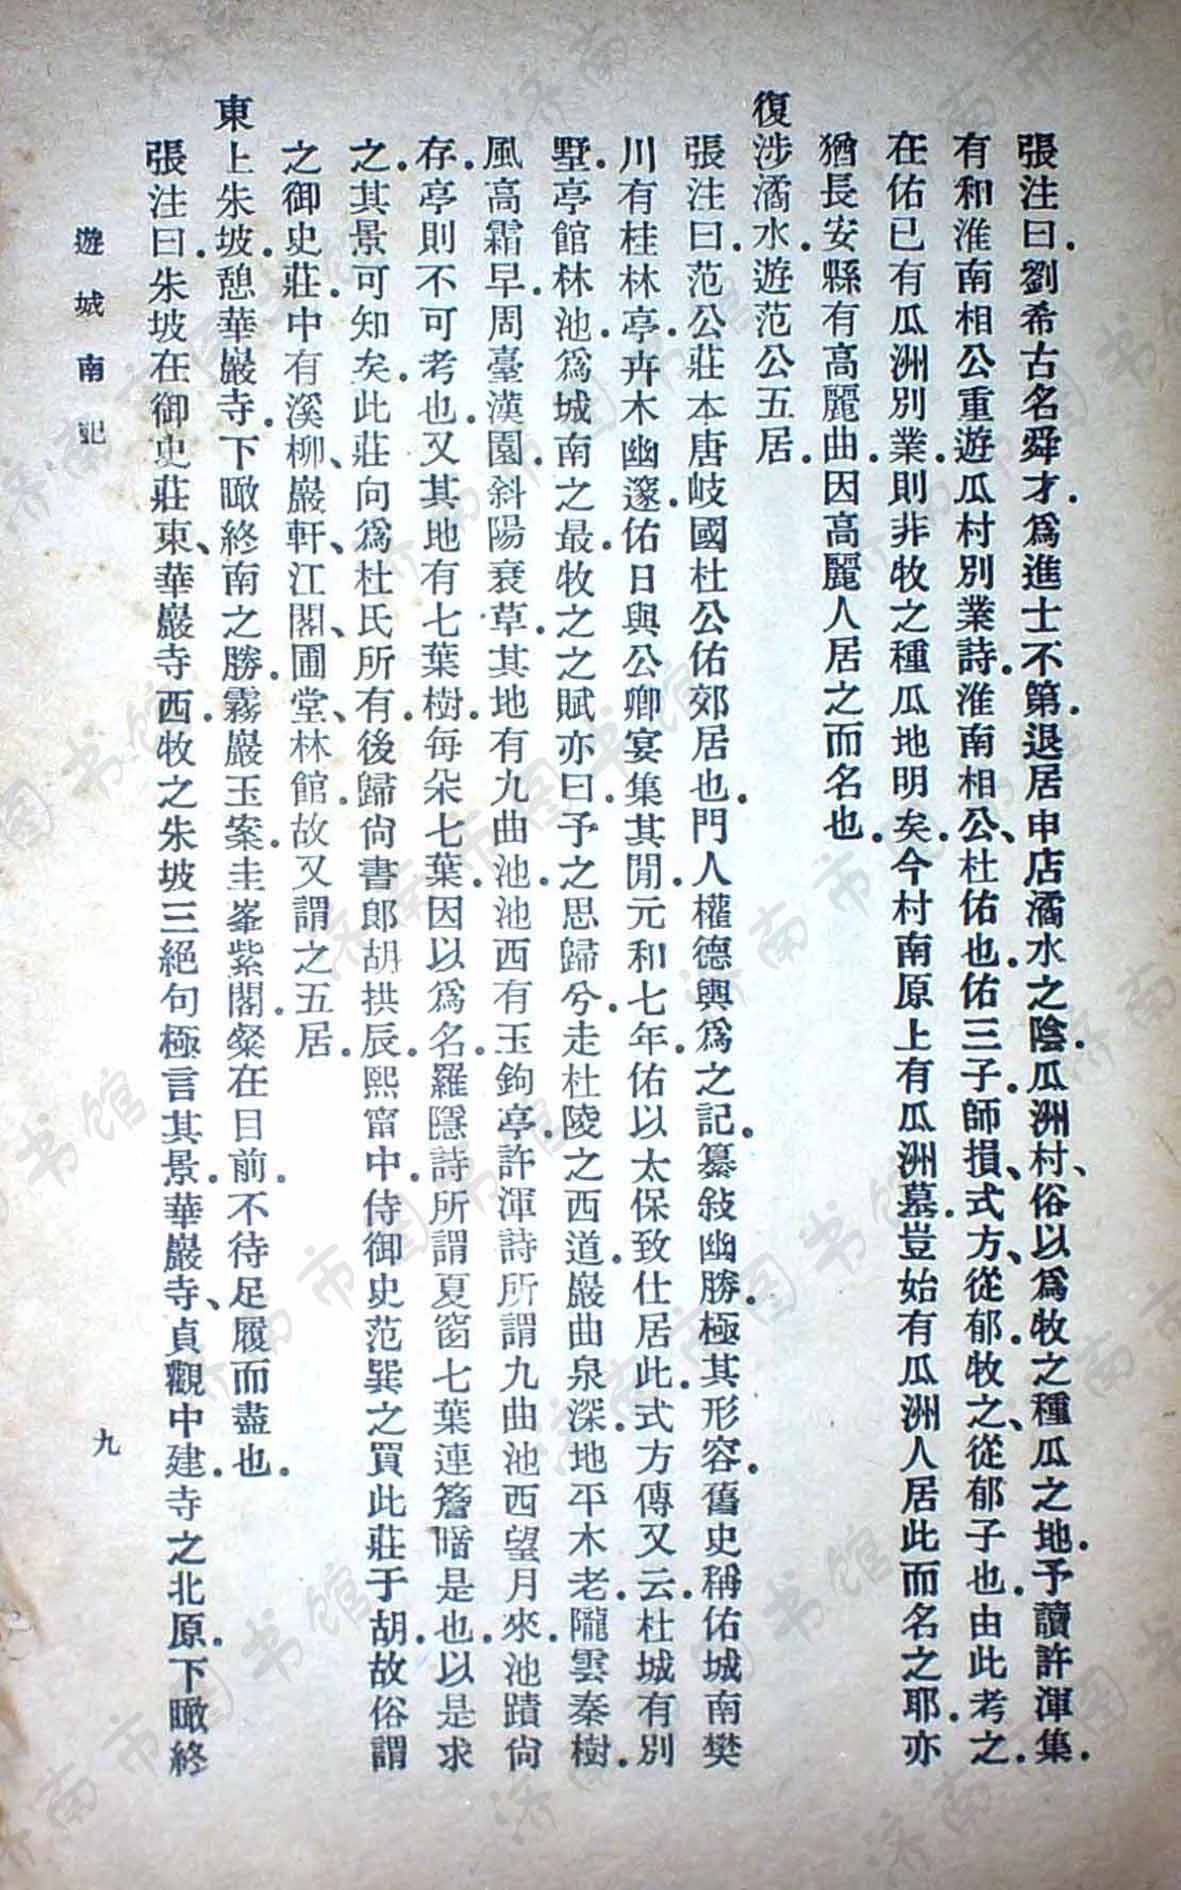 張注曰。劉希古名舜才。爲進士不第。退居申店潏水之陰。瓜洲村、俗以爲牧之種瓜之地。予讀許渾集。
有和淮南相公重遊瓜村別業詩。淮南相公、杜佑也。佑三子。師損、式方、從郁。牧之、從郁子也。由此考之。
在佑已有瓜洲別業。則非牧之種瓜地明矣。今村南原上有瓜洲墓。豈始有瓜洲人居此而名之耶。亦
猶長安縣有高麗曲。因高麗人居之而名也。
復涉潏水。遊范公五居。
張注曰。范公莊本唐岐國杜公佑郊居也。門人權德輿爲之記。纂敍幽勝。極其形容。舊史稱佑城南樊
川有桂林亭。卉木幽邃。佑日與公卿宴集其閒。元和七年。佑以太保致仕居此。式方傳又云。杜城有別
墅。亭館林池。爲城南之最。牧之之賦亦曰。予之思歸兮。走杜陵之西道。巖曲泉深。地平木老。隴雲秦樹。
風高霜早。周臺漢園。斜陽衰草。其地有九曲池。池西有玉鉤亭。許渾詩所謂九曲池西望月來。池蹟尙
存。亭則不可考也。又其地有七葉樹。每朵七葉。因以爲名。羅隱詩所謂夏窗七葉連簷暗是也。以是求
之。其景可知矣。此莊向爲杜氏所有。後歸尙書郎胡拱辰。熙甯中。侍御史范巽之買此莊于胡。故俗謂
之御史莊。中有溪柳、巖軒、江閣、圃堂、林館。故又謂之五居。
東上朱坡。憩華巖寺。下瞰終南之勝。霧巖玉案。圭峯紫閣。粲在目前。不待足履而盡也。
張注曰。朱坡在御史莊東、華巖寺西。牧之朱坡三絕句極言其景。華巖寺、貞觀中建。寺之北原。下瞰終
遊城南記
九
济南市图书馆